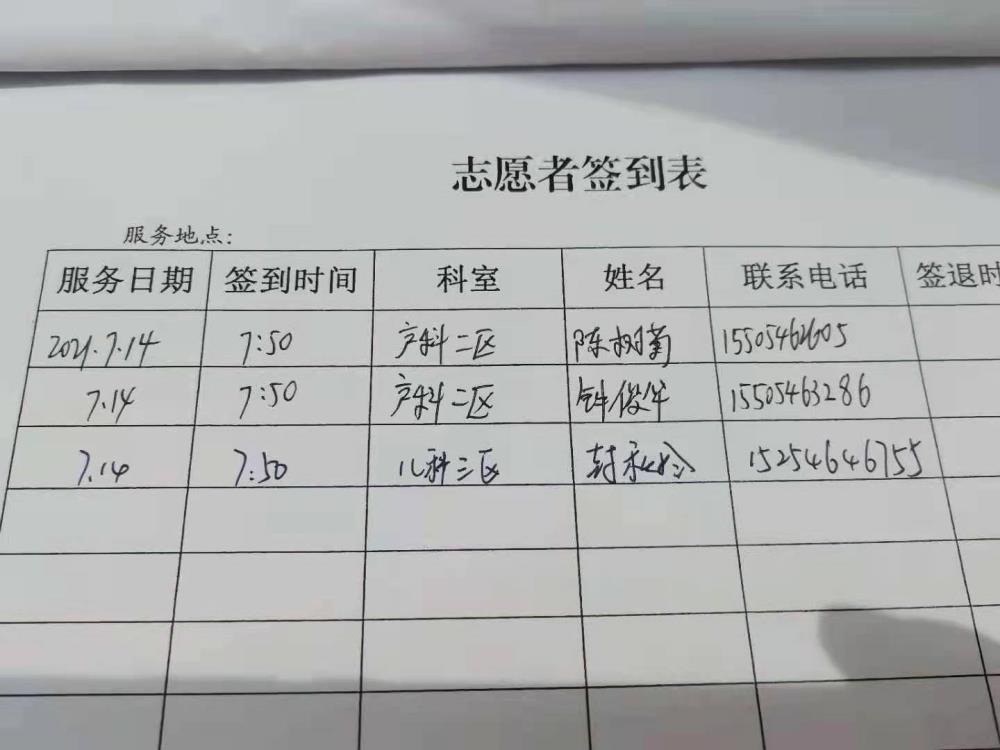 志愿者签到表
服务地点:
服务日期 签到时间 科室 姓名 联系电话 签退时
2021.7.14 7:50 产科二区 陈树菊 15505462605
7.14 7:50 产科二区 15505463286
7.14 7:50 儿科三区 15254646755